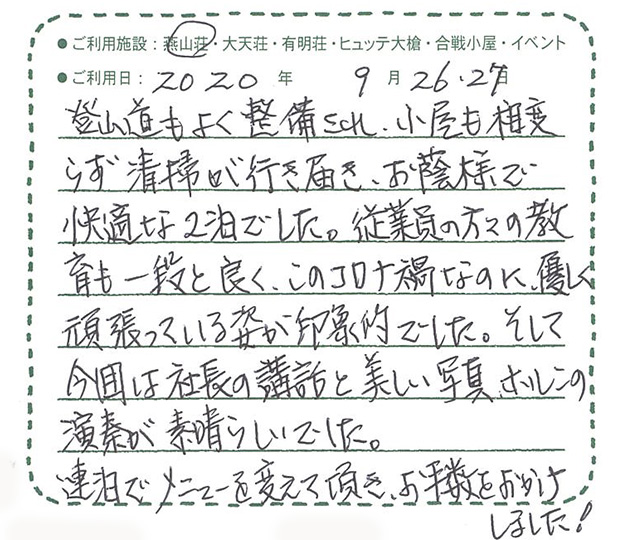 ●ご利用施設：燕山荘・大天荘・有明荘・ヒュッテ大槍・合戦小屋・イベント
●ご利用日：2020年 9月26・27日
登山道もよく整備され、小屋も相変
らず清掃が行き届き、お蔭様で
快適な2泊でした。従業員の方々の教
育も一段と良く、このコロナ禍なのに、優しく
頑張っている姿が印象的でした。そして
今回は社長の講話と美しい写真、ホルンの
演奏が素晴らしいでした。
連泊でメニューを変えて頂き、お手数をおかけ
しました!